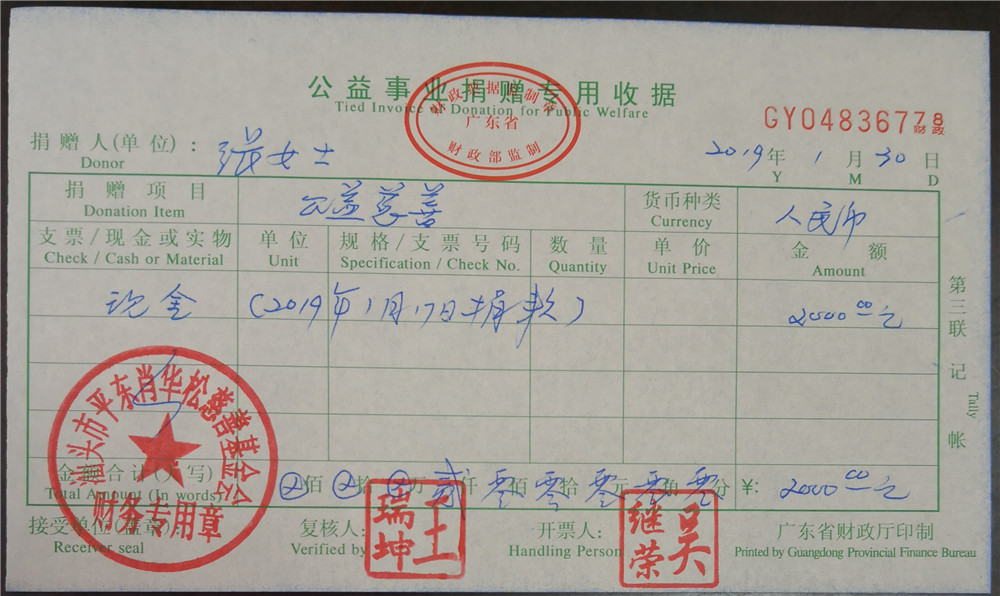 公益事业捐赠专用收据
Tied Invoice of Donation for Public Welfare
财政票据监制章
广东省
财政部监制
GY04836778
财政
捐赠人(单位): 张女士
Donor
2019年 1月 30日
Y M D
捐赠项目 公益慈善 货币种类 人民币
Donation Item Currency
支票/现金或实物 单位 规格/支票号码 数量 单价 金额
Check / Cash or Material Unit Specification / Check No. Quantity Unit Price Amount
现金 (2019年1月17日捐款) 2000 00元
第三联 记帐
Tally
汕头市平东肖华松慈善基金会
财务专用章
金额合计(大写) 佰 拾 万 贰仟 零佰 零拾 零元 零角 零分 ¥: 2000 00元
Total Amount (In words)
接受单位(盖章): 复核人: 开票人: 广东省财政厅印制
Receiver seal Verified by Handling Person Printed by Guangdong Provincial Finance Bureau
王瑞坤
吴继荣